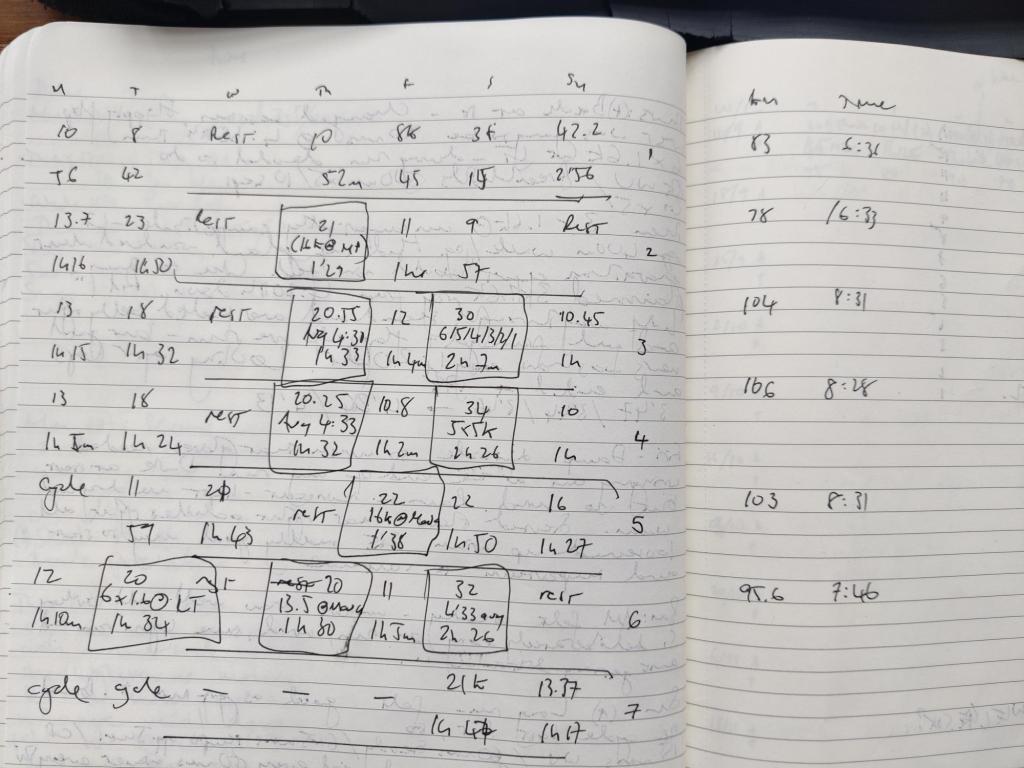 M T W Th F S Su Km Time
10 8 Rest 10 8k 3k 42.2 1 83 6:36
42 52m 45 15 2'56
13.7 23 Rest 21 11 9 Rest 2 78 6:33
(16k@MP)
1h16 1h50 1'29 1hr 57
13 18 rest 20.55 12 30 10.45 104 8:31
Avg 4:30 6/5/4/3/2/1 3
1h15 1h32 1h33 2h7m 1h
13 18 rest 20.25 10.8 34 10 106 8:28
Avg 4:33 5x5k 4
1h 24 1h32 1h2m 2h26 1h
cycle 11 20 rest 22 22 16 103 8:31
16k@Mavg 5
57 1h.43 1'38 1h.50 1h27
12 20 20 11 32 rest 95.6 7:46
6x1.6@LT 13.5@Mavg 4'33 avg 6
1h10m 1h34 1h30 1h5m 2h26
cycle cycle – – – 21k 13.37 7
1h17